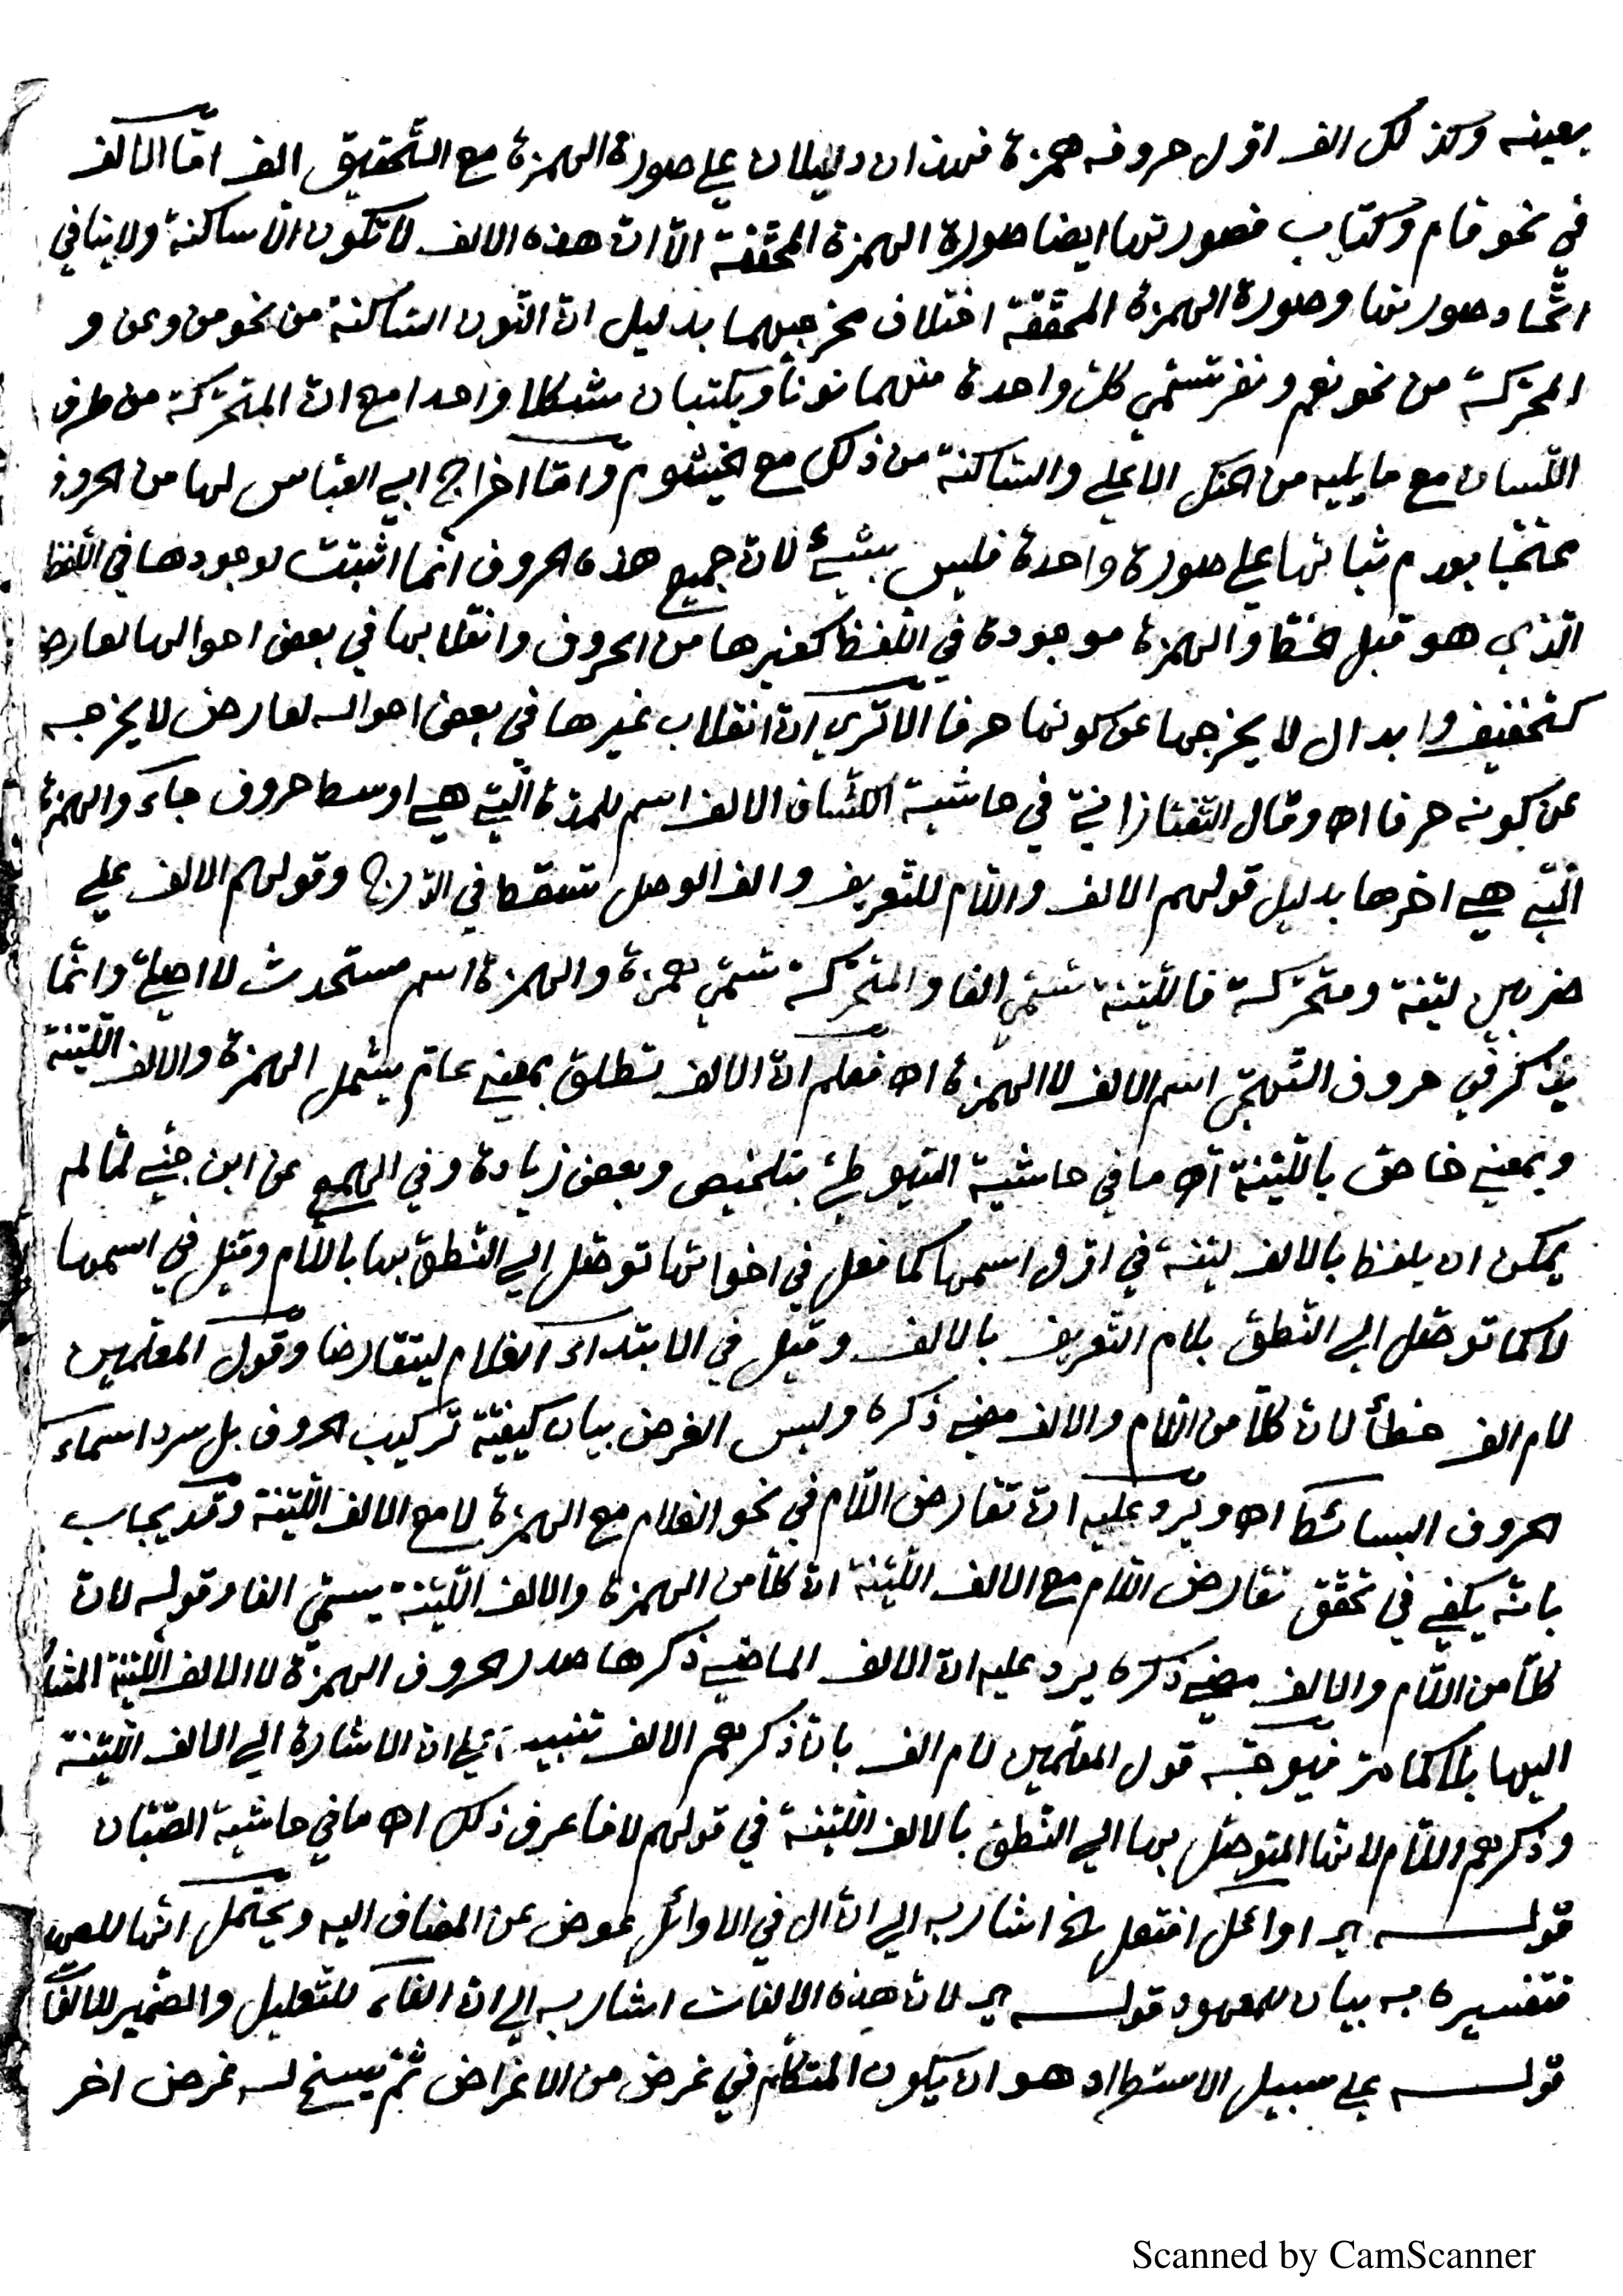 بعينه وكذلك الف اوّل حروفه همزة فهذان دليلان علي صورة الهمزة مع التّحقيق الف امّا الالف
في نحو قام وكتاب فصورتها ايضا صورة الهمزة المحقّقة الّا انّ هذه الالف لا تكون الّا ساكنة ولا ينافي
اتّحاد صورتها وصورة الهمزة المحقّقة اختلاف مخرجيهما بدليل انّ النّون السّاكنة من نحو من وعن و
المحرّكة من نحو نعم ونفر تسمّي كلّ واحدة منهما نونا ويكتبان شكلا واحدا مع انّ المتحرّكة من طرف
اللّسان مع ما يليه من الحنك الاعلي والسّاكنة من ذلك مع الخيشوم وامّا اخراج ابي العبّاس لها من الحروف
محتجّا بعدم ثباتها علي صورة واحدة فليس بشيئ لانّ جميع هذه الحروف انّما اثبتت لوجودها في اللّفظ
الّذي هو قبل الخطّ والهمزة موجودة في اللّفظ كغيرها من الحروف وانقلابها في بعض احوالها لعارض
كتخفيف وابدال لا يخرجها عن كونها حرفا الا تري انّ انقلاب غيرها في بعض احواله لعارض لا يخرجه
عن كونه حرفا اه وقال التّفتازانيّ في حاشية الكشّاف الالف اسم للمدّة الّتي هي اوسط حروف جاء والهمزة
الّتي هي اخرها بدليل قولهم الالف واللّام للتّعريف والف الوصل تسقط في الدّرج وقولهم الالف علي
ضربين ليّنة ومتحرّكة فاللّيّنة تسمّي الفا والمتحرّكة تسمّي همزة والهمزة اسم مستحدث لا اصليّ وانّما
يذكر في حروف التّهجّي اسم الالف لا الهمزة اه فعلم انّ الالف تطلق بمعني عامّ يشمل الهمزة والالف اللّيّنة
وبمعني خاصّ باللّيّنة اه ما في حاشية السّيوطيّ بتلخيص وبعض زيادة وفي الهمع عن ابن جنّي لمّا لم
يمكن ان يلفظ بالالف ليّنة في اوّل اسمها كما فعل في اخواتها توصّل الي النّطق بها باللّام وقيل في اسمها
لا كما توصّل الي النّطق بلام التّعريف بالالف وقيل في الابتداء الغلام ليتقارضا وقول المعلّمين
لام الف خطأ لانّ كلّا من اللّام والالف مضي ذكره وليس الغرض بيان كيفيّة تركيب الحروف بل سرد اسماء
الحروف البسائط اه ويرد عليه انّ تقارض اللّام في نحو الغلام مع الهمزة لا مع الالف اللّيّنة وقد يجاب
بانّه يكفي في تحقّق تقارض اللّام مع الالف اللّيّنة انّ كلّا من الهمزة والالف اللّيّنة يسمّي الفا وقوله لانّ
كلّا من اللّام والالف مضي ذكره يرد عليه انّ الالف الماضي ذكرها صدر الحروف الهمزة لا الالف اللّيّنة المشار
اليها بلا كما مرّ فيوجّه قول المعلّمين لام الف بانّ ذكرهم الالف تنبيه علي انّ الاشارة الي الالف اللّيّنة
وذكرهم اللّام لانّها المتوصّل بها الي النّطق بالالف اللّيّنة في قولهم لا فاعرف ذلك اه ما في حاشية الصّبّان
قوله اوائل افتعل الخ اشار به الي انّ ال في الاوائل عوض عن المضاف اليه ويحتمل انّها للعهد
فتفسيره به بيان للمعهود قوله لانّ هذه الالفات اشار به الي انّ الفاء للتّعليل والضّمير للالفات
قوله علي سبيل الاستطراد هو ان يكون المتكلّم في غرض من الاغراض ثمّ يسنح له غرض اخر
Scanned by CamScanner